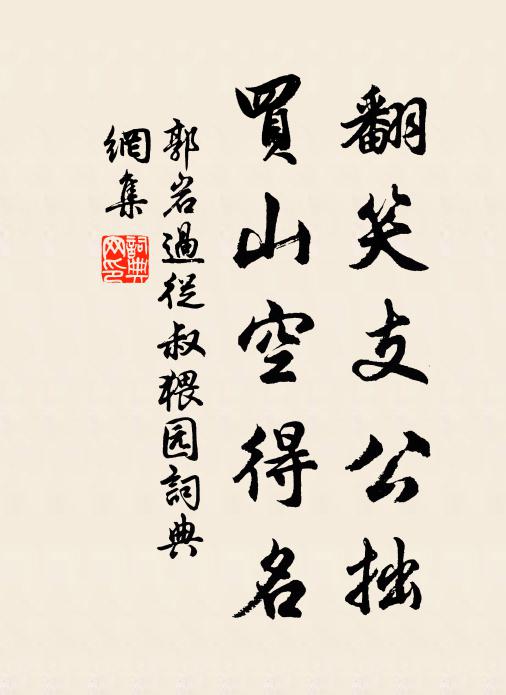 翻笑支公拙
買山空得名
郭岩過從叔猥园詞典
網集
詞典
网印